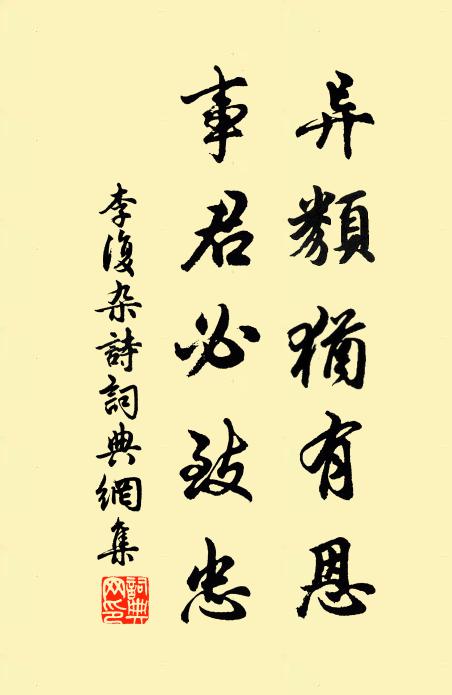 异類猶有恩
事君必致忠
李復杂詩詞典網集
詞典网印